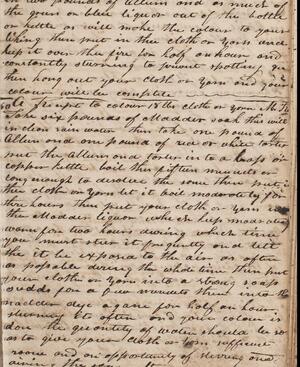 two pounds of Allum and as much of
the green or blue liquor out of the bottle
as will make the colour to your
liking then put in the cloth or yarn and
keep it over the fire for half an hour and
constantly stirring to prevent spotting
then hang out your cloth or yarn and your
colour will be complete
receipt to colour 18 lbs cloth or yarn M
Take six pounds of Madder soak this well
in clean rain water then take one pound of
Allum and one pound of red or white tartar
put the Allum and tarter in to a brass or
copper kettle boil this fifteen minuets or
long enough to desolve the same then put in
the cloth or yarn let it boil moderately for
three hours then put your cloth or yarn in
the Madder liquor which keep moderately
warm for two hours during which time
you must stir it frequently and let
the it be exposed to the air as often
as possable during the whole time then put
your cloth or yarn into a strong soap
sudds for a few minuets then into the
madder dye again for half an hour
stirring it often and your colour is
don the quantity of water should be so
as to give your cloth or yarn sufficent
room and an opportunity of stirring and
airing the